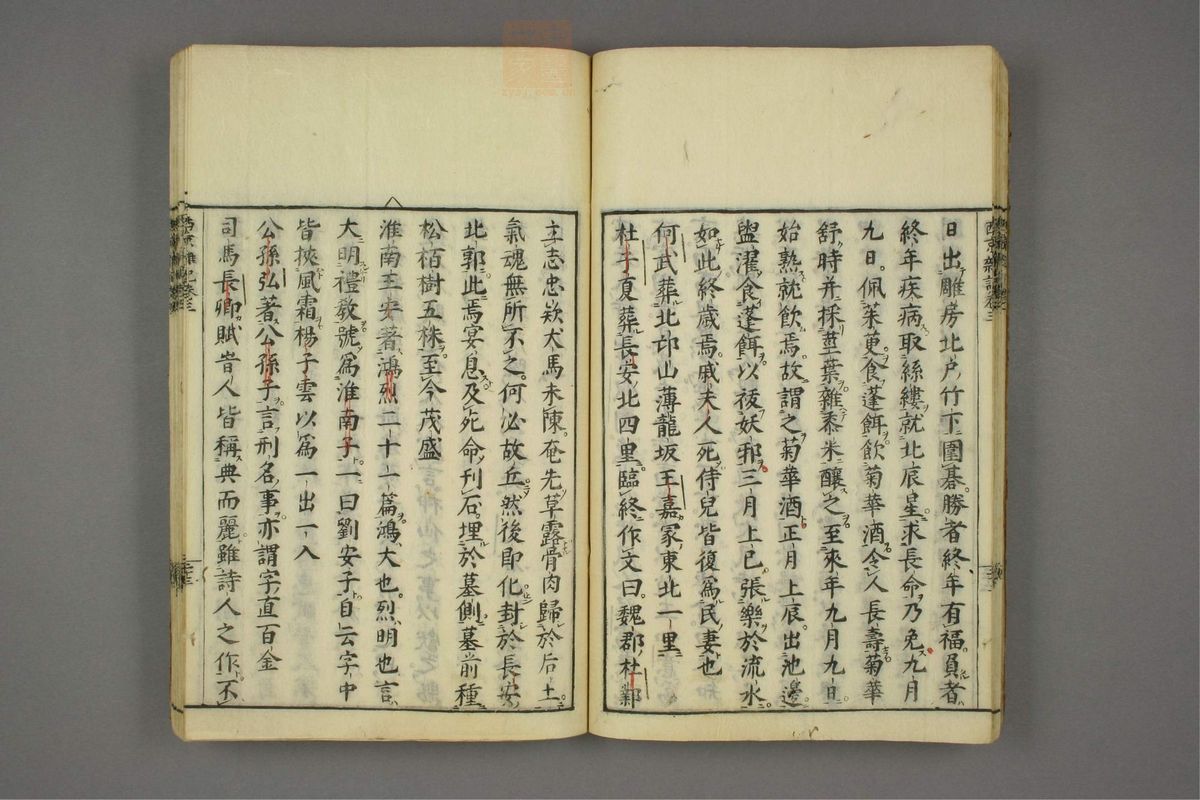 日出雕房北戶竹下圍碁勝者終年有福負者
終年疾病取絲縷就北辰星求長命乃免九月
九日佩茱萸食蓬餌飲菊華酒令人長壽菊華
舒時并採莖葉雜黍米釀之至來年九月九日
始熟就飲焉故謂之菊華酒正月上辰出池邊
盥濯食蓬餌以祓妖邪三月上巳張樂於流水
如此終歲焉戚夫人死侍兒皆復爲民妻也
何武葬北邙山薄龍坂王嘉冢東北一里
杜子夏葬長安北四里臨終作文曰魏郡杜鄴
立志忠欵犬馬未陳奄先草露骨肉歸於后土
氣魂無所不之何必故丘然後即化封於長安
北郭此焉宴息及死命刊石埋於墓側墓前種
松栢樹五株至今茂盛
淮南王安著鴻烈二十一篇鴻大也烈明也言
大明禮敎號爲淮南子一曰劉安子自云字中
皆挾風霜楊子雲以爲一出一入
公孫弘著公孫子言刑名事亦謂字直百金
司馬長卿賦旹人皆稱典而麗雖詩人之作不
西京雜記卷三